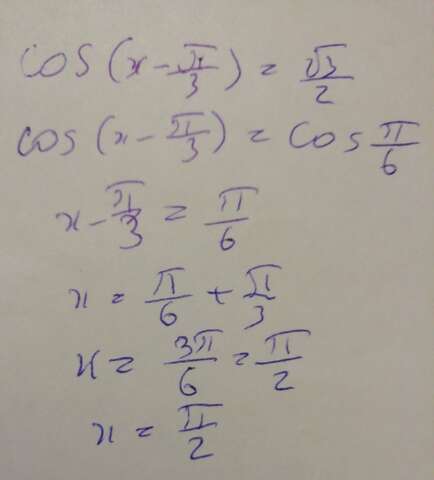 cos(x - π/3) = √3/2
cos(x - π/3) = cos π/6
x - π/3 = π/6
x = π/6 + π/3
x = 3π/6 = π/2
x = π/2